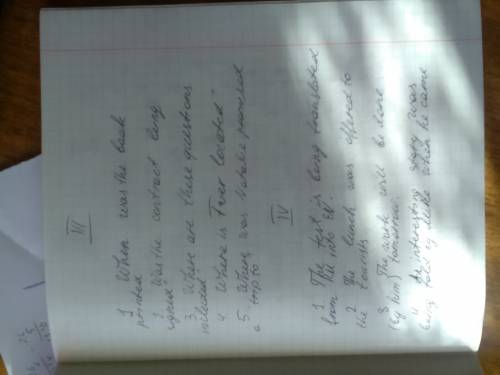 III
1 When was the book
printed
2 Was the contract being
signed
3. Where are these questions
included
4. Where is Tver located
5. Where was Natalie promised
a trip to
IV
1 The text is being translated
from into
2 The lunch was offered to
the tourists
3 The work will be done
(by him) tomorrow.
4 An interesting story was
being told by Mike when he came